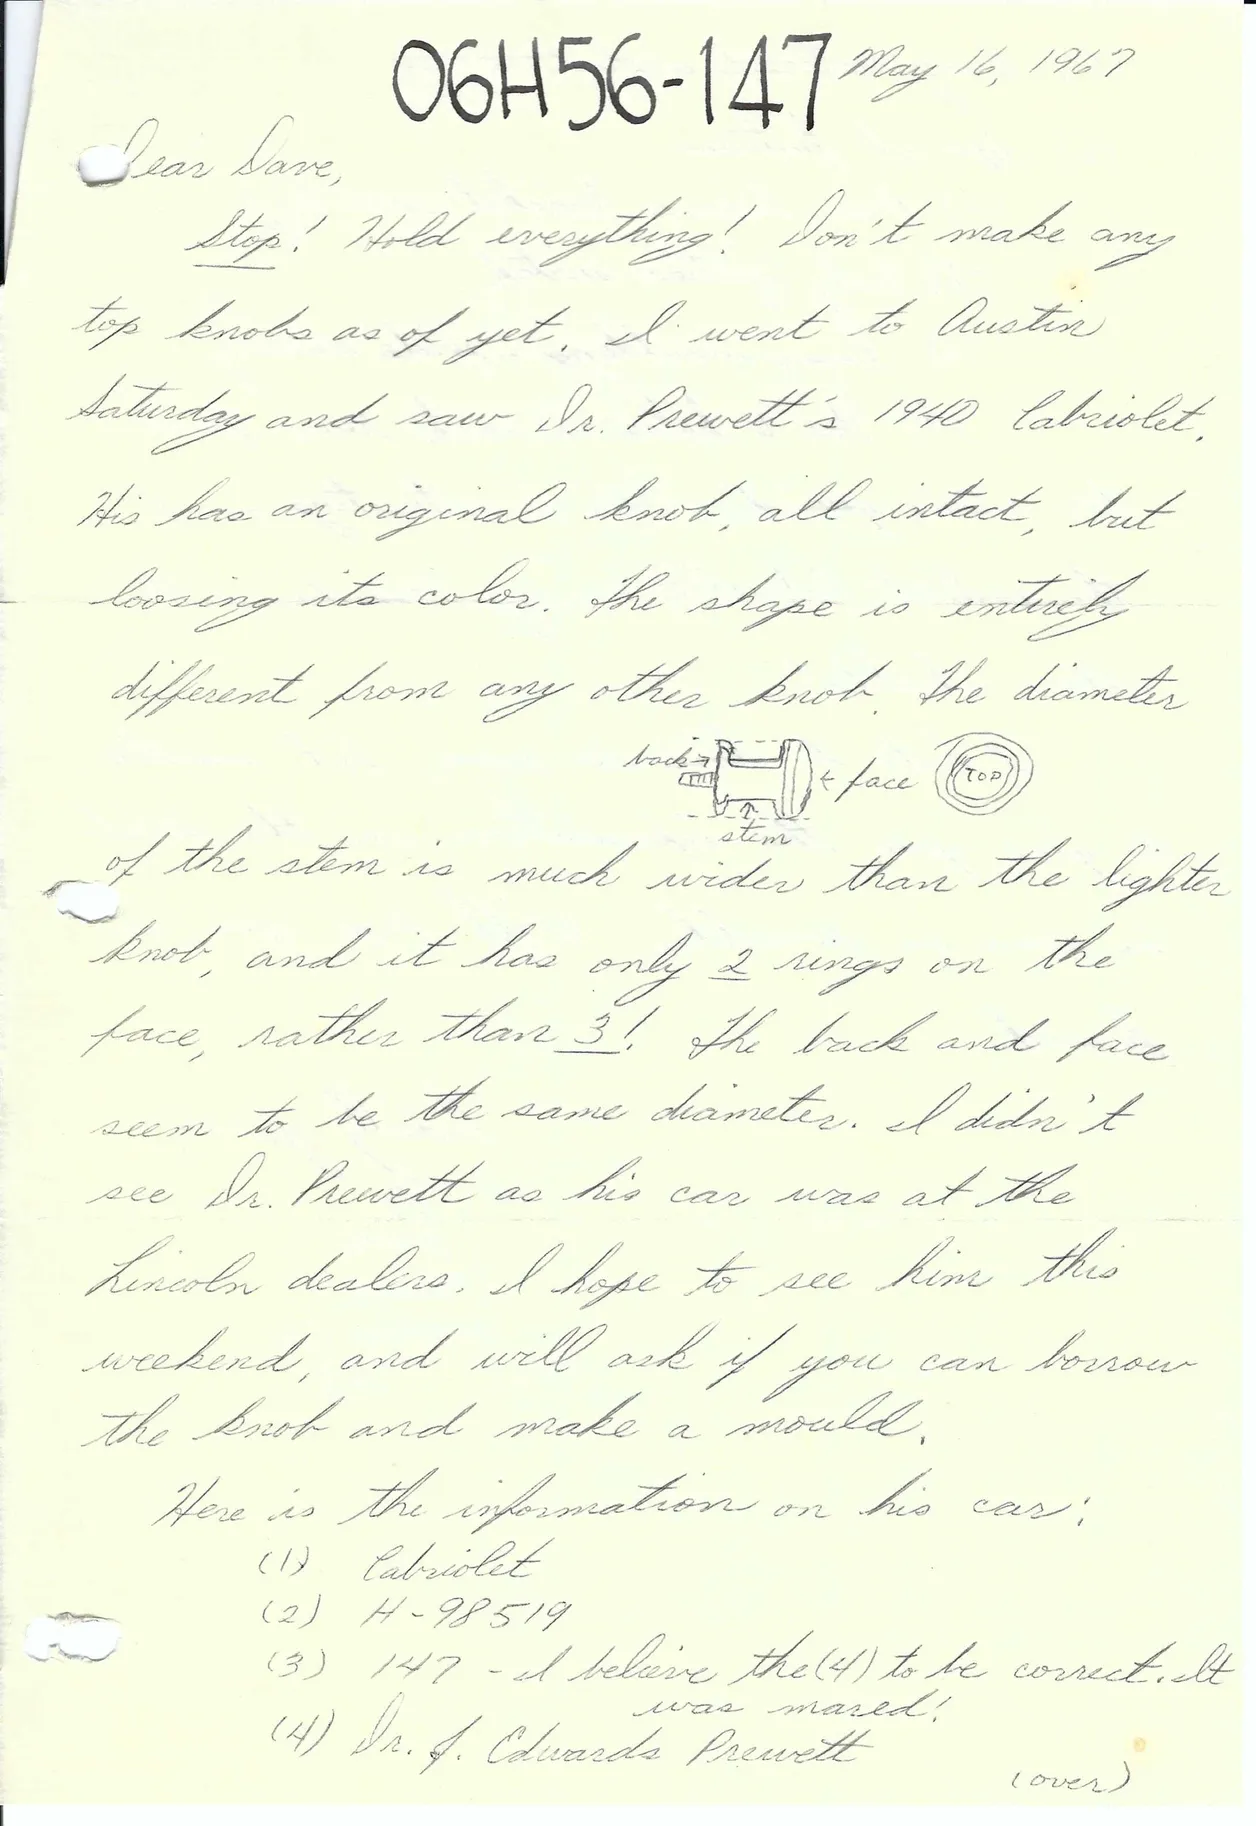 06H56-147 May 16, 1967
Dear Dave,
Stop! Hold everything! Don't make any
top knobs as of yet. I went to Austin
Saturday and saw Dr. Prewett's 1940 Cabriolet.
His has an original knob, all intact, but
loosing its color. The shape is entirely
different from any other knob. The diameter
back → ← face TOP
stem
of the stem is much wider than the lighter
knob, and it has only 2 rings on the
face, rather than 3! The back and face
seem to be the same diameter. I didn't
see Dr. Prewett as his car was at the
Lincoln dealers. I hope to see him this
weekend, and will ask if you can borrow
the knob and make a mould.
Here is the information on his car:
(1) Cabriolet
(2) H-98519
(3) 147 - I believe the (4) to be correct. It
was mared!
(4) Dr. J. Edwards Prewett
(over)